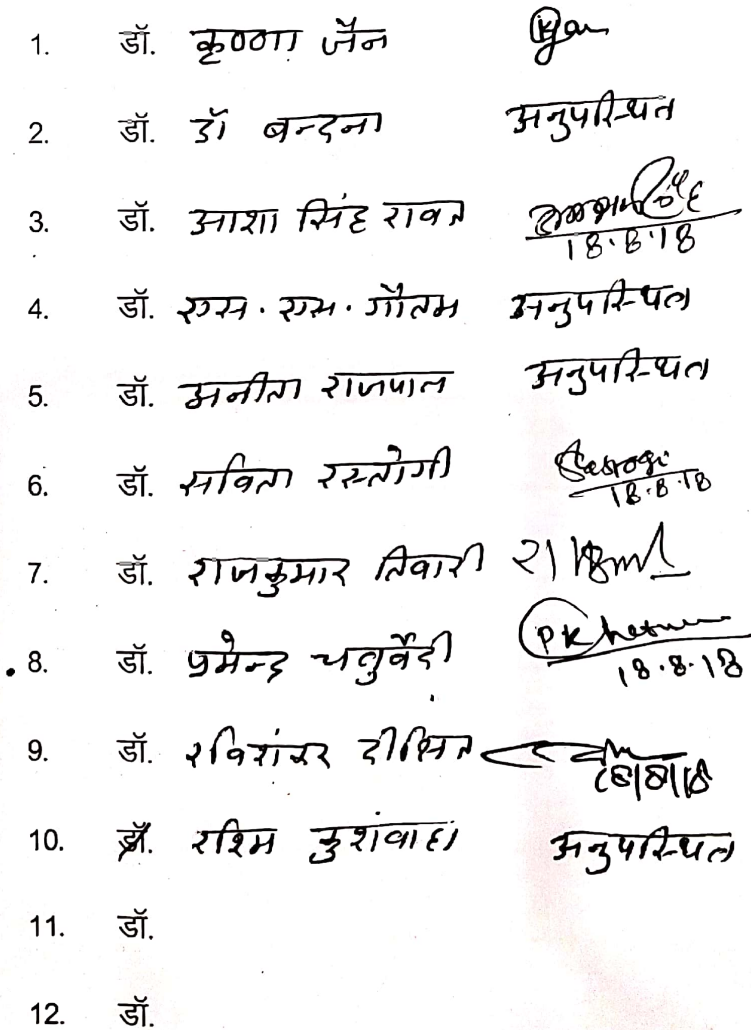 1. डॉ. कृष्णा जैन
2. डॉ. डॉ बन्दना अनुपस्थित
3. डॉ. आशा सिंह रावत 18.8.18
4. डॉ. एस. एस. गौतम अनुपस्थित
5. डॉ. अनीता राजपाल अनुपस्थित
6. डॉ. सविता रस्तोगी 18.8.18
7. डॉ. राजकुमार तिवारी
8. डॉ. प्रमेन्द्र चतुर्वेदी 18.8.18
9. डॉ. रविशंकर दीक्षित 18/8/18
10. डॉ. रश्मि कुशवाहा अनुपस्थित
11. डॉ.
12. डॉ.